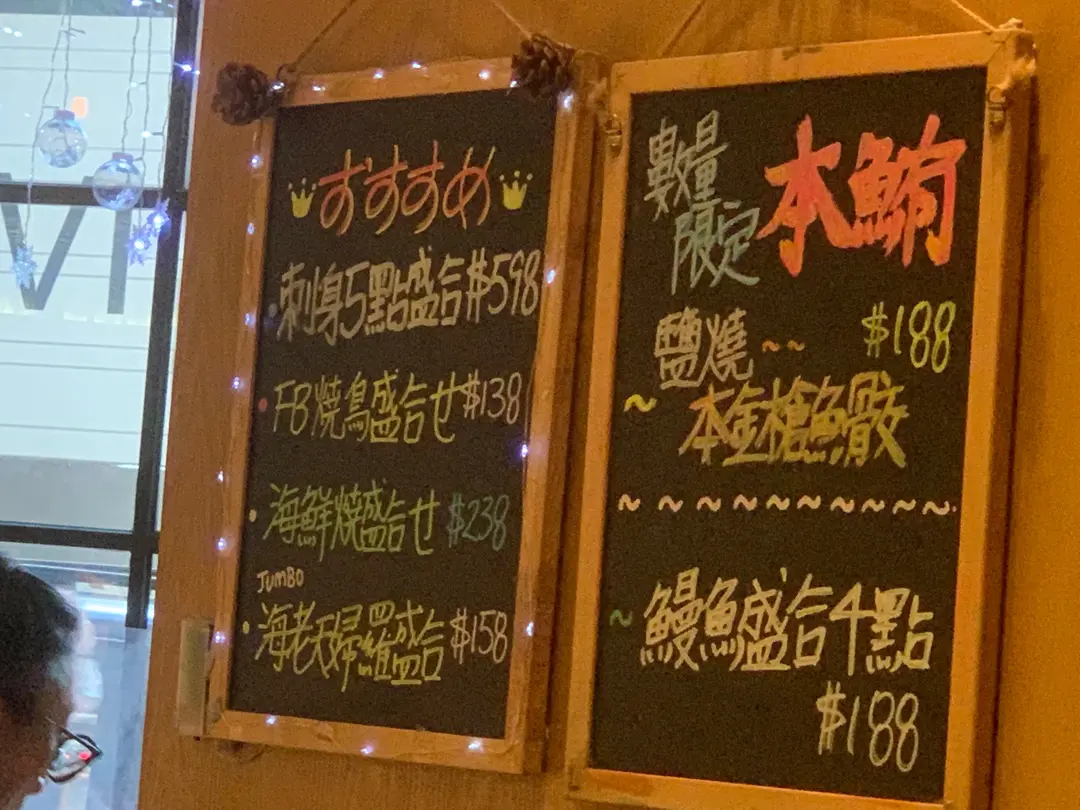 おすすめ
・刺身5點盛合$598
・FB焼鳥盛合せ$138
・海鮮焼盛合せ $238
JUMBO
・海老天婦羅盛合$158
數量
限定
本鮪
鹽燒~~ $188
~本金槍魚骹
~~~~~~~~~~
~鰻魚盛合4點
$188